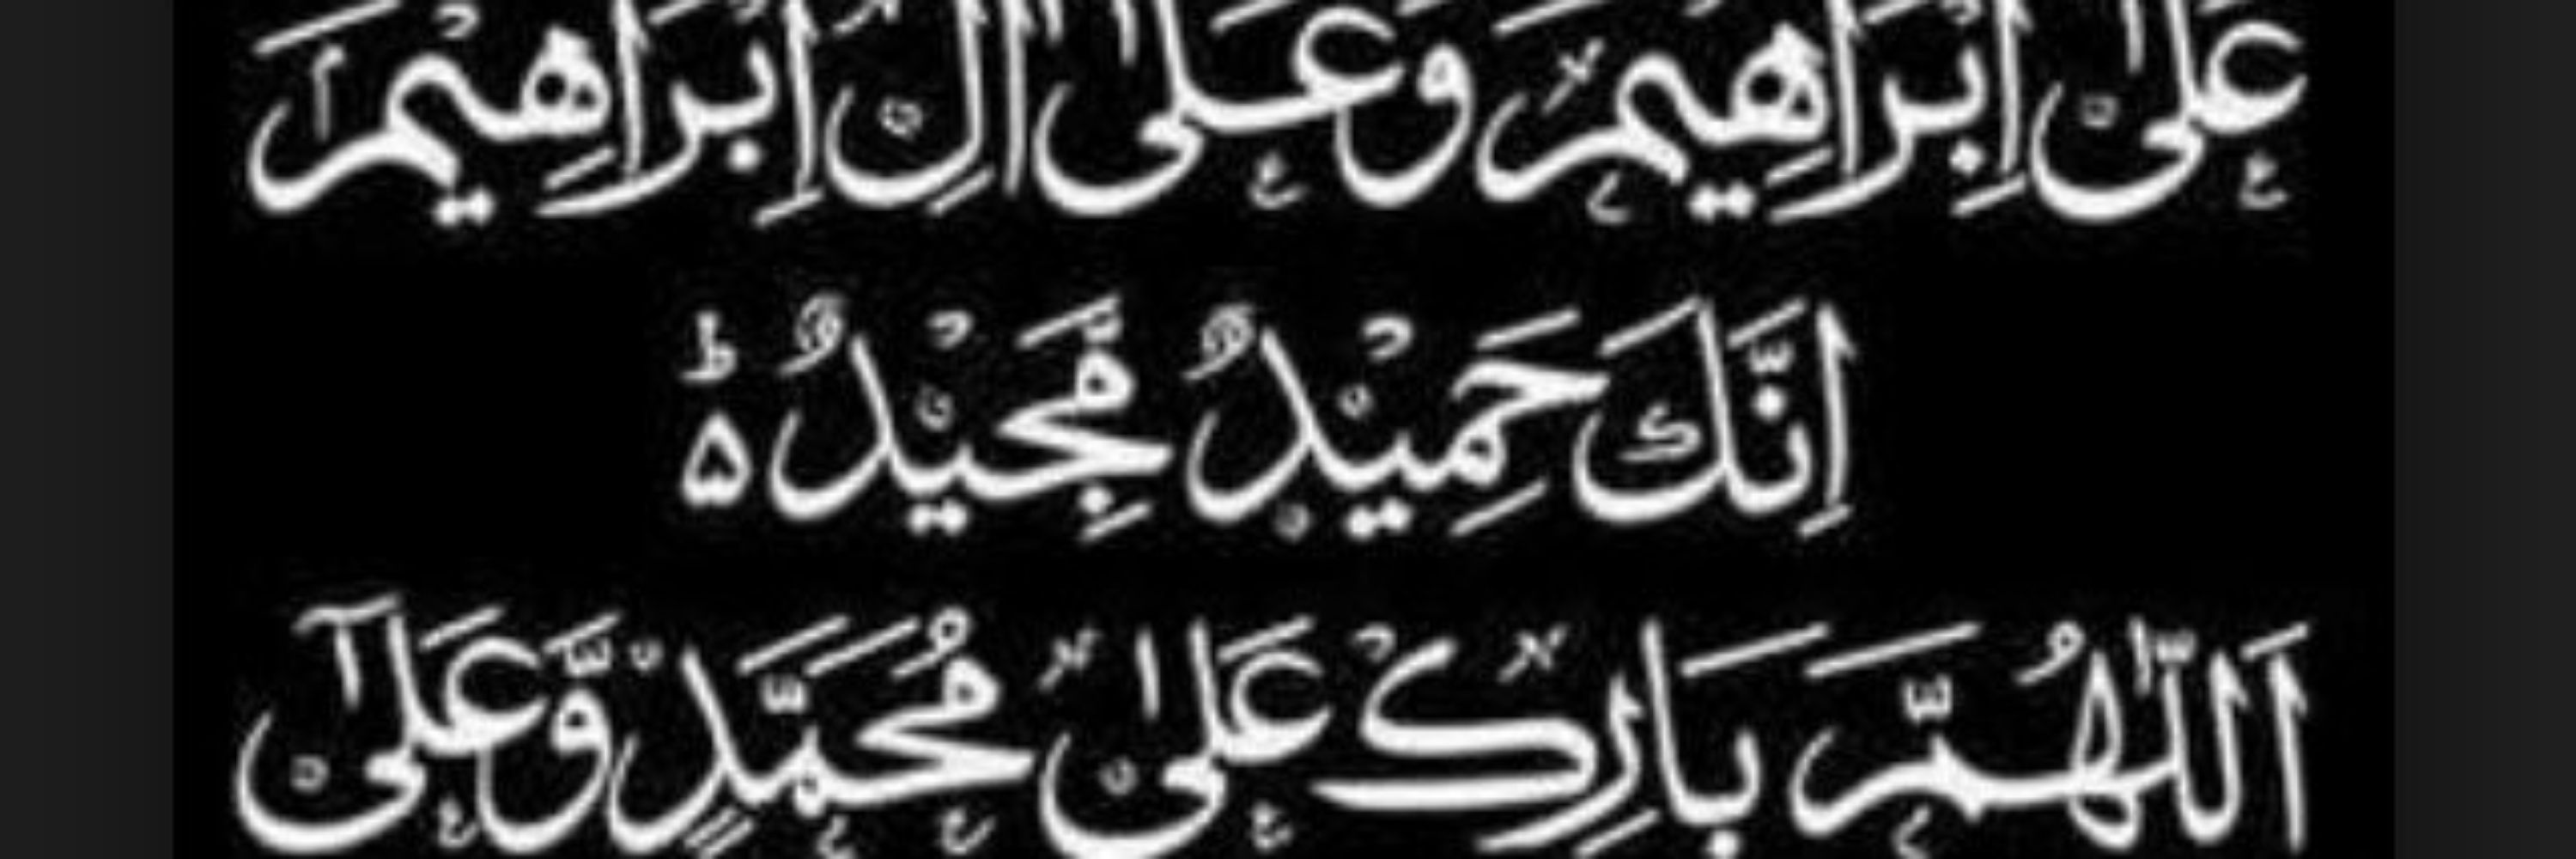 عَلٰى اِبْرَاهِيْمَ وَعَلٰى اٰلِ اِبْرَاهِيْمَ
اِنَّكَ حَمِيْدٌ مَّجِيْدٌ ؕ ه
اَللّٰهُمَّ بَارِكْ عَلٰى مُحَمَّدٍ وَّعَلٰٓى